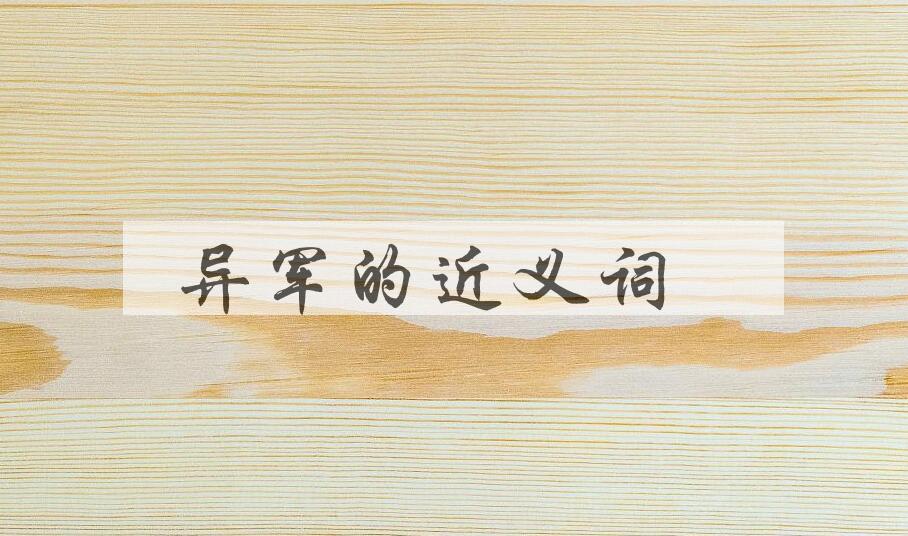 异军的近义词